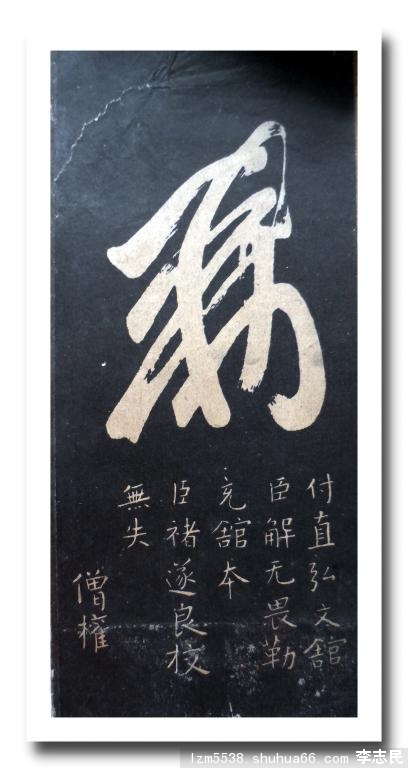 敕
付直弘文舘
臣解无畏勒
充舘本
臣褚遂良校
無失
僧權
lzm5538 shuhua66 . com 李志民